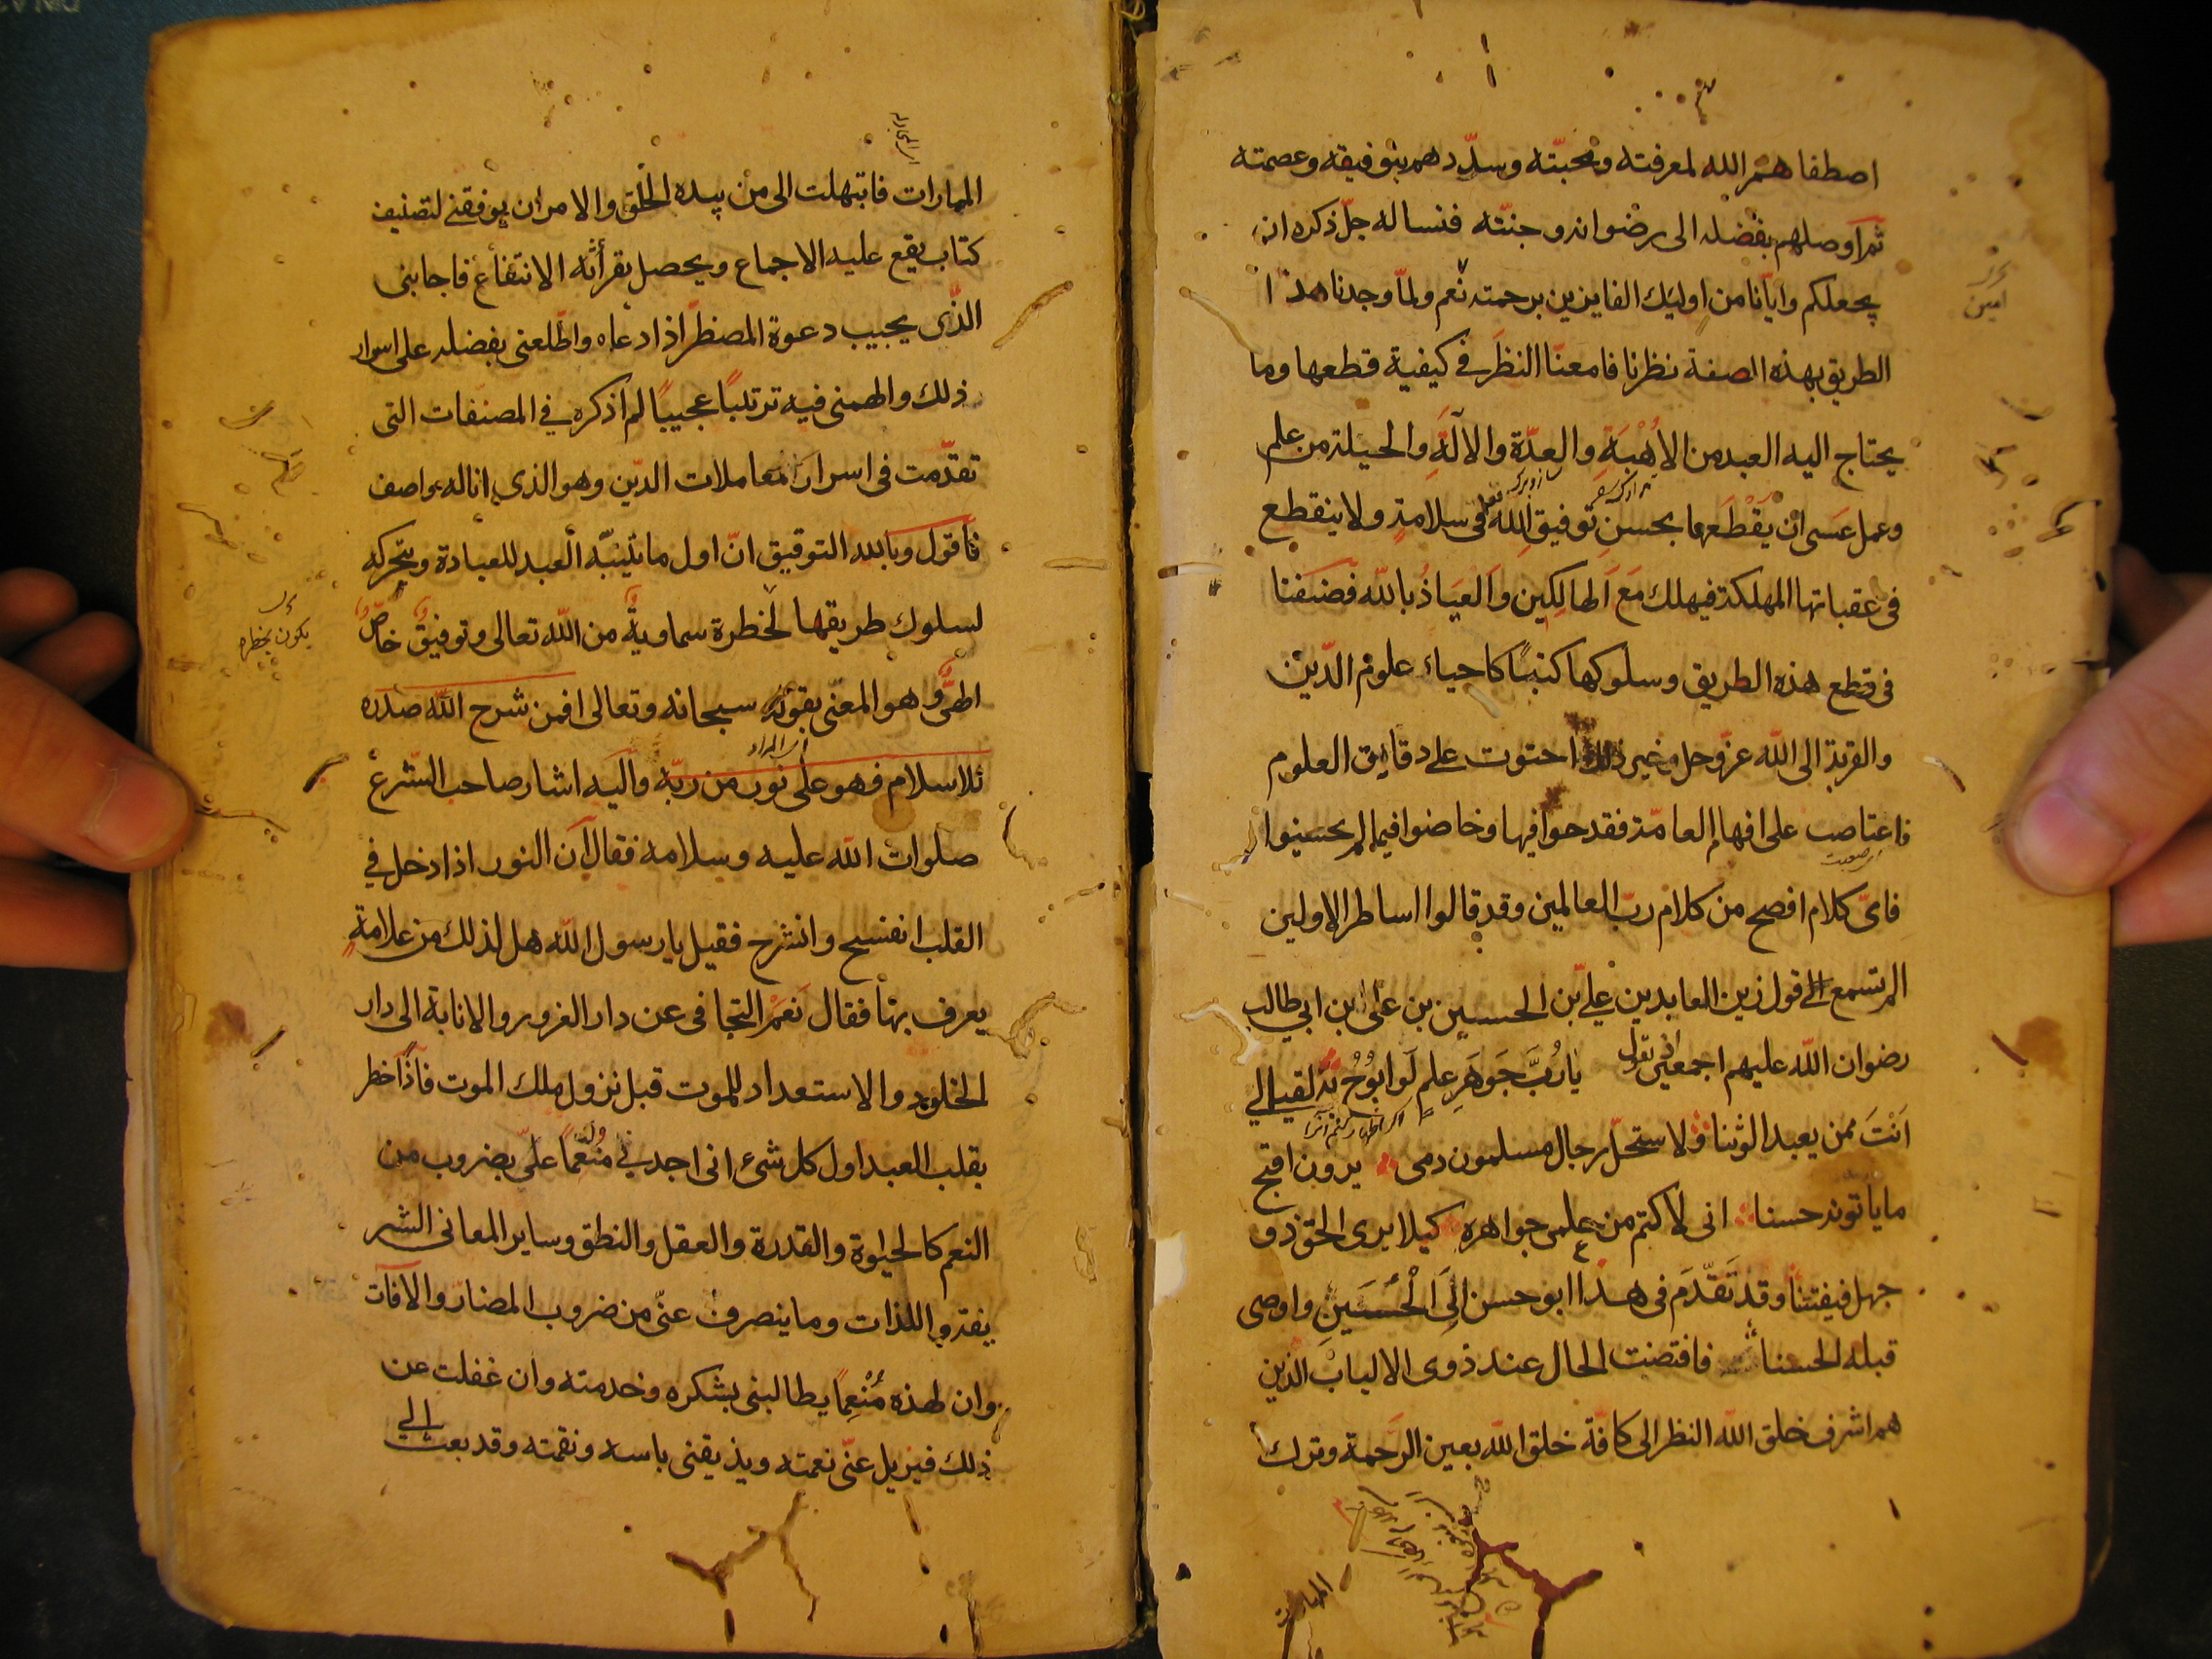 اصطفاهم الله لمعرفته ومحبّته وسدّدهم بتوفيقه وعصمته
ثم اوصلهم بفضله الى رضوانه وجنّته فنساله جلّ ذكره ان
يجعلكم وايّانا من اوليك الفايزين برحمته نعم ولمّا وجدنا هذا
الطريق بهذه الصفة نظرنا فامعنّا النظر في كيفية قطعها وما
يحتاج اليه العبد من الاهْبَةِ والعدّة والآلَةِ والحيلة من علم
وعمل عَسَى ان يقْطَعها بحسنِ توفيقِ الله في سلامةٍ ولا ينقطع
في عقباتها المهلكة فيهلك مَعَ الهالِكِين وَالعَيَاذُ بالله فصَنّفنا
في قطع هذه الطريق وسلوكها كتبًا كاحياء علوم الدّين
والقربة الى الله عزّ وجل وغير ذلك احتوت على دقايق العلوم
فاعتاصت على افهام العامّة فقدحوا فيها وخاضوا فيما لم يحسنوا
فاىّ كلام افصح من كلام ربّ العالمين وقد قالوا اساطر الاولين
الم تسمع الى قول زين العابدين عليّ بن الحسين بن على بن ابي طالب
رضوان الله عليهم اجمعين يقول يا رُبَّ جَوهَرِ علم لَو ابُوحُ به لقيل لي
اَنْتَ ممن يعبد الوثنا ولاستحلّ رجال مسلمون دمى يرون اقبح
ما ياتونه حسنا انى لاكتم من علمى جواهره كيلا يرى الحق ذو
جهل فيفتتنا وقد تَقَدّمَ في هذا ابو حسن اِلَى الْحُسَينِ واوصى
قبله الحسنا فاقتضت الحال عند ذوى الالباب الذين
هم اشرف خلق الله النظر الى كافّة خلق الله بعين الرّحمة وترك
المماراة
امين
المماراة فابتهلت الى من بيده الخلق والامر ان يوفقنى لتصنيف
كتاب يقع عليه الاجماع ويحصل بقرأته الانتفاع فاجابنى
الّذى يجيب دعوة المضطرّ اذا دعاه واطّلعنى بفضله على اسرار
ذلك والهمنى فيه ترتيبًا عجيبًا لم اذكره في المصنّفات التى
تقدّمت في اسرار معاملات الدّين وهو الذي انا له واصف
فاقول وبالله التوفيق انّ اول ما يتنبّه العبد للعبادة ويتحرك
لسلوك طريقها لخطرة سماوية من الله تعالى وتوفيق خاصّ
الهىّ وهو المعنّى بقوله سبحانه وتعالى افمن شرح الله صدره
للاسلام فهو على نور من ربّه واليه اشار صاحب الشرع
صلوات الله عليه وسلامه فقال ان النور اذا دخل في
القلب انفسح وانشرح فقيل يا رسول الله هل لذلك من علامةٍ
يعرف بها فقال نَعَمْ التجافى عن دار الغرور والانابة الى دار
الخلود والاستعداد للموت قبل نزول ملك الموت فاذا خطر
بقلب العبد اول كل شئ انى اجدنى مُنْعَمًا علىّ بضروب من
النعم كالحيوة والقدرة والعقل والنطق وساير المعانى الشر
يفة واللذات وما ينصرف عنّى من ضروب المضارّ والافات
وان لهذه مُنْعِمًا يطالبنى بشكره وخدمته وان غفلت عن
ذلك فيزيل عنّى نعمته ويذيقنى باسه ونقمته وقد بعث الىّ
يكون بخطرة